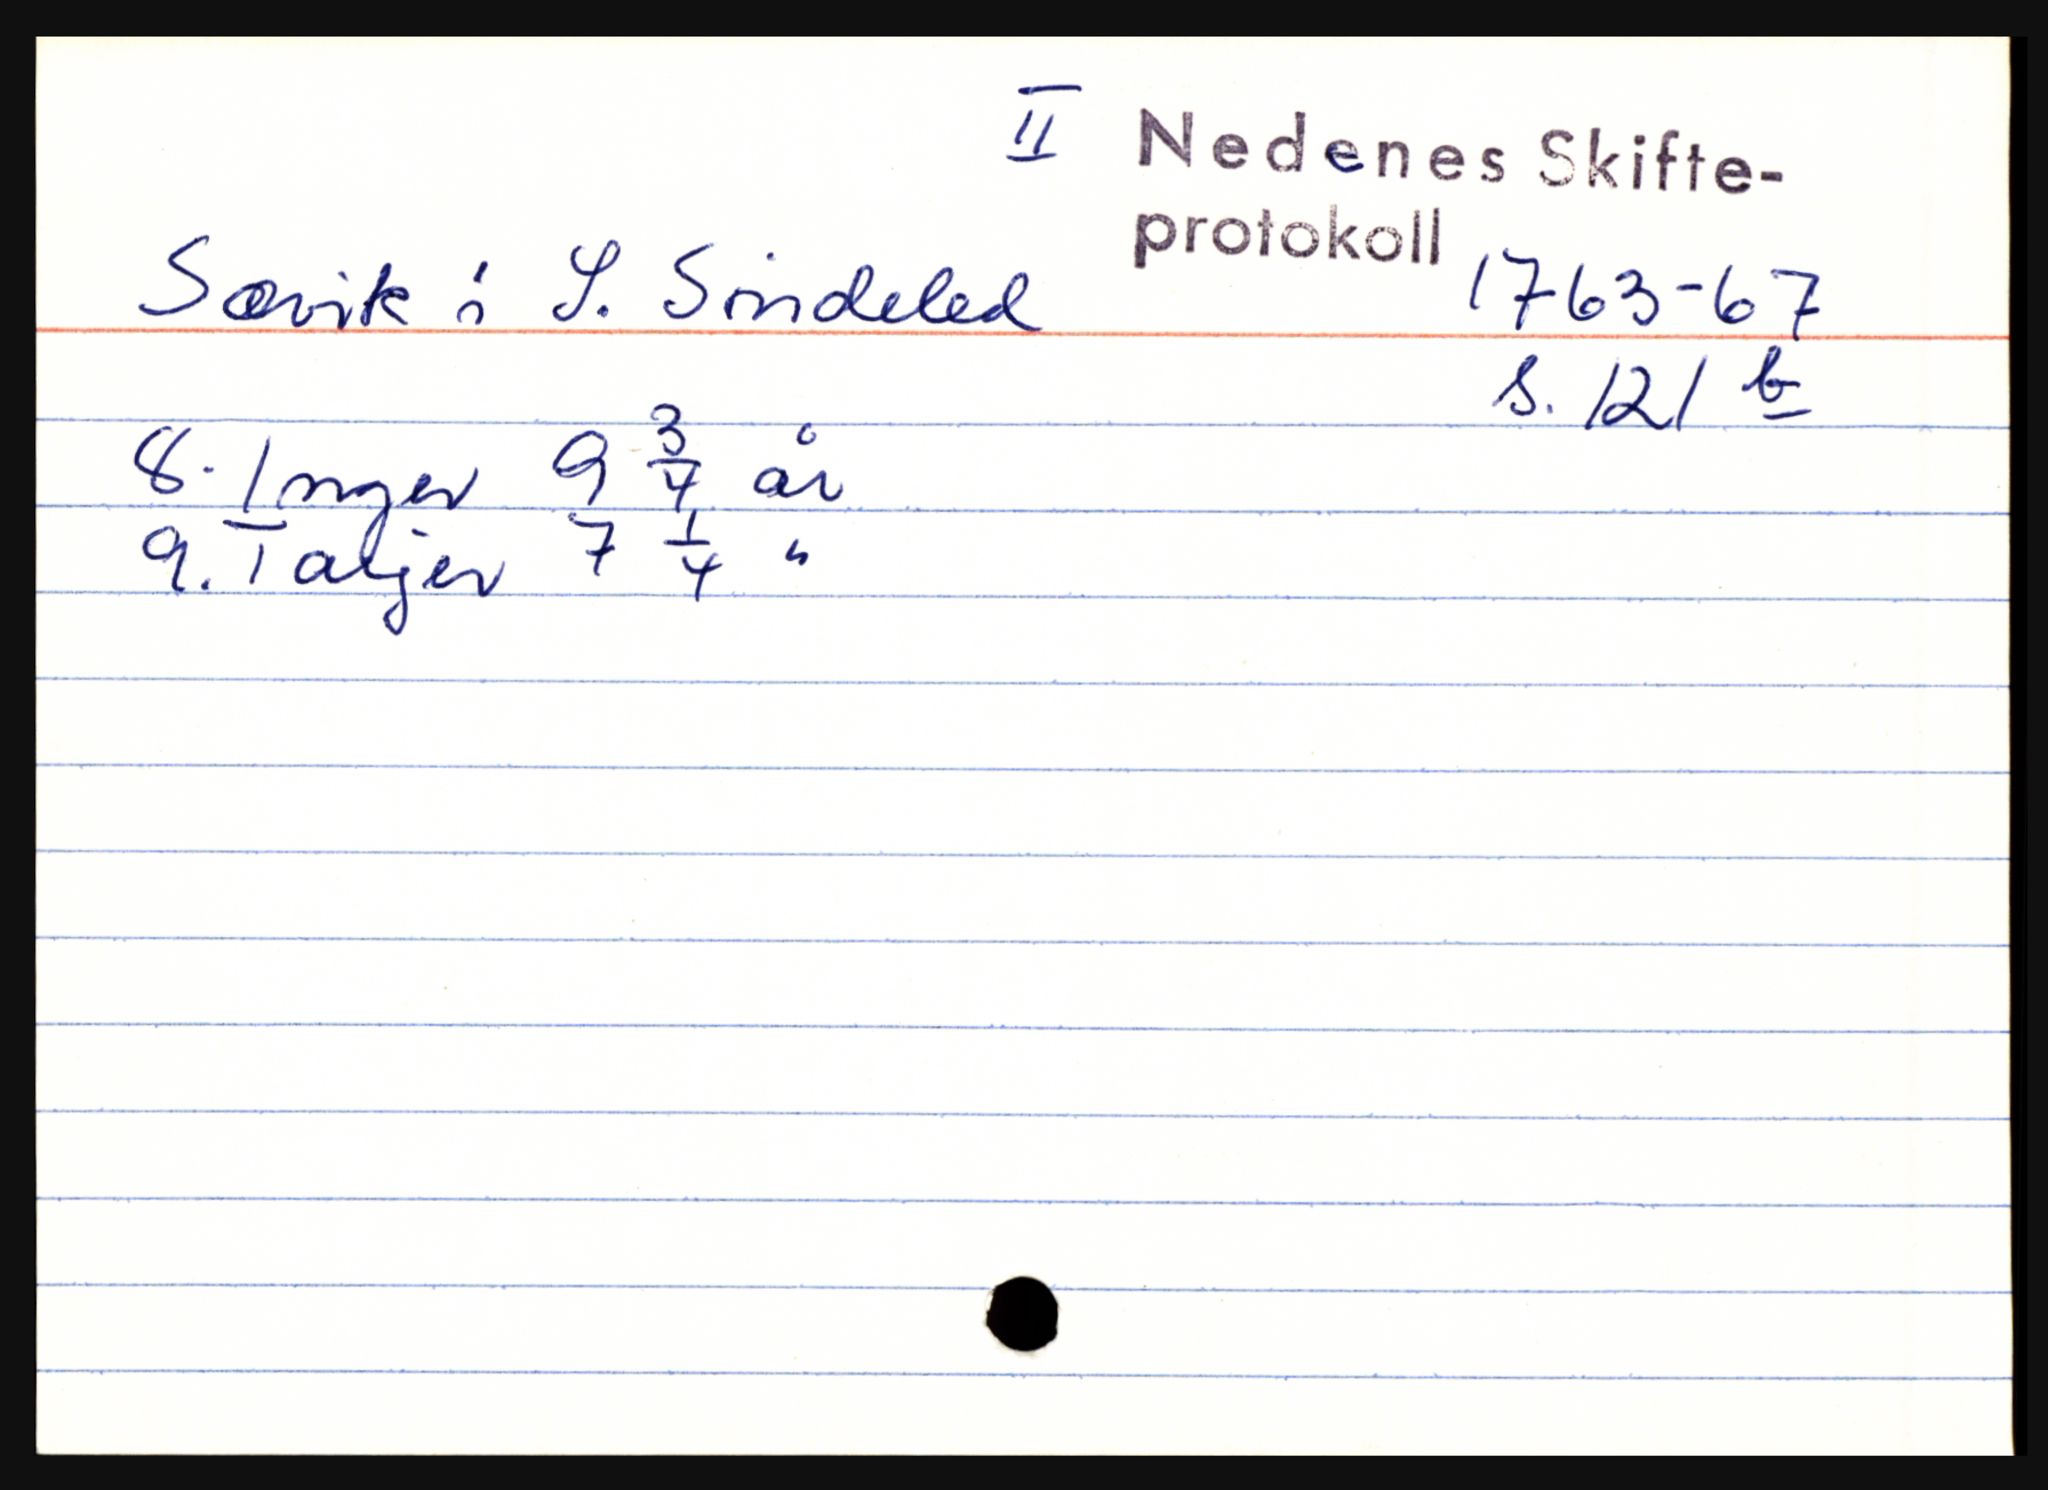 II Nedenes Skifte-
protokoll
Sævik i S. Sindeled 1763-67
s. 121 b
8. Inger 9 3/4 år
9. Taljer 7 1/4 "